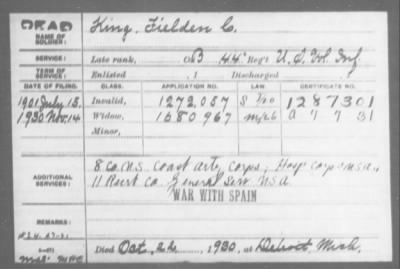 DEAD
NAME OF SOLDIER: King, Fielden C.
SERVICE: Late rank, Co B 44" Reg't U.S. Vol. Inf.
TERM OF SERVICE: Enlisted , 1 Discharged , 1
DATE OF FILING. CLASS. APPLICATION NO. LAW. CERTIFICATE NO.
1901 July 15. Invalid, 1272,057 1287301
1930 Nov. 14 Widow, 1680967 A 7 7 31
Minor,
ADDITIONAL SERVICES: 8 Co. U.S. Coast Arty Corps; Hosp Corps U.S.A.,
11 Recrt Co. General Serv. USA
WAR WITH SPAIN
REMARKS:
Died Oct. 22, 1930, at Detroit, Mich.